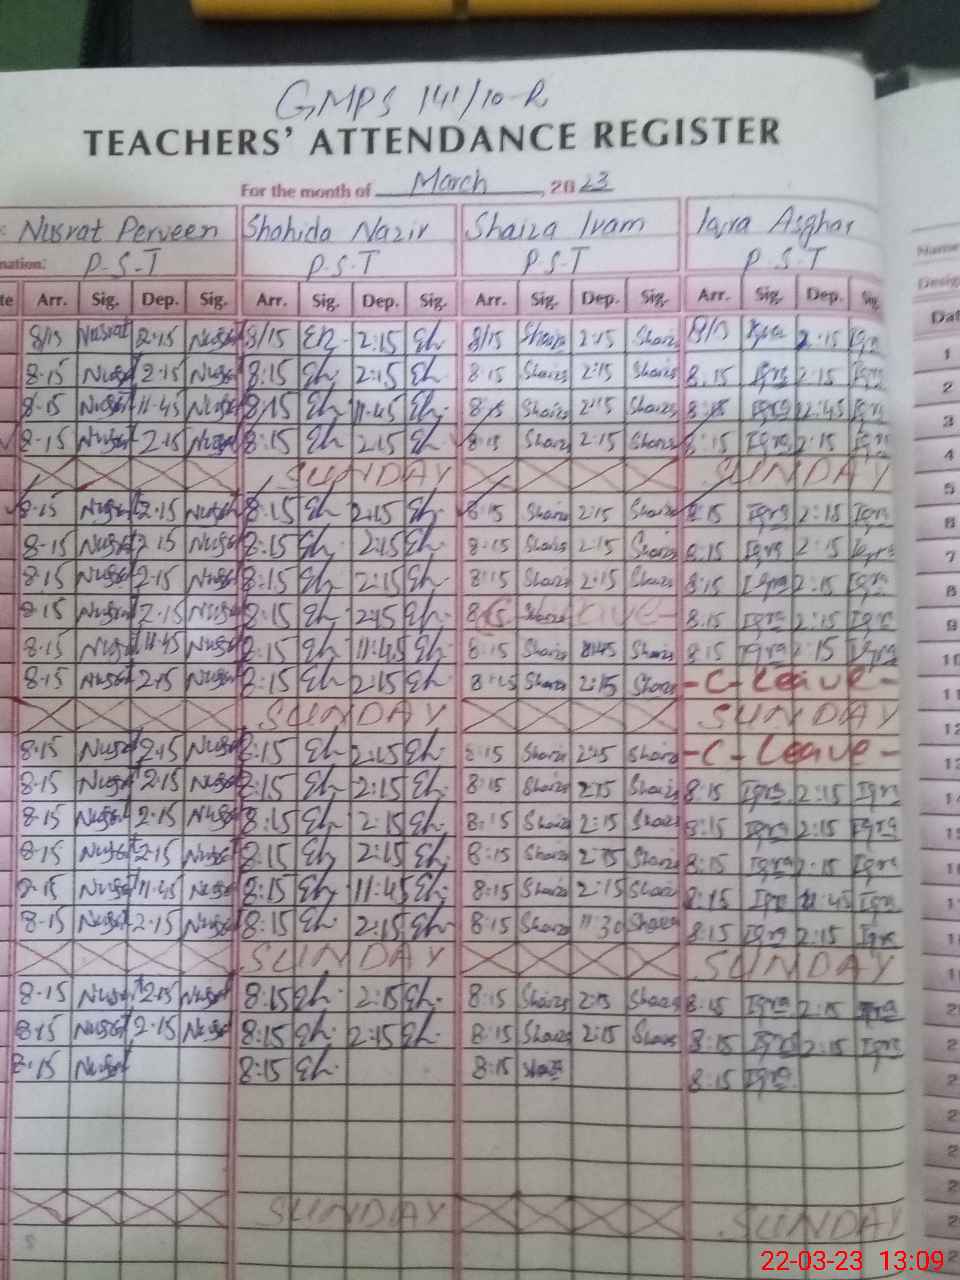 GMPS 141/10-R
TEACHERS' ATTENDANCE REGISTER
For the month of March, 2023
Nusrat Perveen Shahida Nazir Shaiza Iram Iqra Asghar
P-S-T P-S-T P-S-T P-S-T
Arr. Sig. Dep. Sig. Arr. Sig. Dep. Sig. Arr. Sig. Dep. Sig. Arr. Sig. Dep. Sig.
8/15 Nusrat 2-15 Nusrat 8/15 2:15 8/15 Shaiza 2:15 Shaiza 8/15 Iqra 2:15 Iqra 1
8-15 Nusrat 2-15 Nusrat 8:15 2:15 8:15 Shaiza 2:15 Shaiza 8:15 Iqra 2:15 Iqra 2
8-15 Nusrat 11-45 Nusrat 8:15 11:45 8:15 Shaiza 2:15 Shaiza 8:15 Iqra 12:45 Iqra 3
8-15 Nusrat 2-15 Nusrat 8:15 2:15 8:15 Shaiza 2:15 Shaiza 8:15 Iqra 2:15 Iqra 4
SUNDAY SUNDAY 5
8-15 Nusrat 2-15 Nusrat 8:15 2:15 8:15 Shaiza 2:15 Shaiza 8:15 Iqra 2:15 Iqra 6
8-15 Nusrat 2-15 Nusrat 8:15 2:15 8:15 Shaiza 2:15 Shaiza 8:15 Iqra 2:15 Iqra 7
8-15 Nusrat 2-15 Nusrat 8:15 2:15 8:15 Shaiza 2:15 Shaiza 8:15 Iqra 2:15 Iqra 8
8-15 Nusrat 2-15 Nusrat 8:15 2:15 Shaiza 8:15 Iqra 2:15 Iqra 9
8-15 Nusrat 11-45 Nusrat 8:15 11:45 8:15 Shaiza Shaiza 8:15 Iqra 2:15 Iqra 10
8-15 Nusrat 2-15 Nusrat 8:15 2:15 8:15 Shaiza 2:15 Shaiza -C-Leave- 11
SUNDAY SUNDAY 12
8-15 Nusrat 2-15 Nusrat 8:15 2:15 8:15 Shaiza 2:15 Shaiza -C-Leave- 13
8-15 Nusrat 2-15 Nusrat 8:15 2:15 8:15 Shaiza 2:15 Shaiza 8:15 Iqra 2:15 Iqra
8-15 Nusrat 2-15 Nusrat 8:15 2:15 8:15 Shaiza 2:15 Shaiza 8:15 Iqra 2:15 Iqra
8-15 Nusrat 2-15 Nusrat 8:15 2:15 8:15 Shaiza 2:15 Shaiza 8:15 Iqra 2:15 Iqra
8-15 Nusrat 11-45 Nusrat 8:15 11:45 8:15 Shaiza 2:15 Shaiza 8:15 Iqra 11:45 Iqra
8-15 Nusrat 2-15 Nusrat 8:15 2:15 8:15 Shaiza 11:30 Shaiza 8:15 Iqra 2:15 Iqra
SUNDAY SUNDAY
8-15 Nusrat 2-15 Nusrat 8:15 2:15 8:15 Shaiza 2:15 Shaiza 8:15 Iqra 2:15 Iqra
8-15 Nusrat 2-15 Nusrat 8:15 2:15 8:15 Shaiza 2:15 Shaiza 8:15 Iqra 2:15 Iqra
8-15 Nusrat 8:15 8:15 8:15 Iqra
SUNDAY SUNDAY
22-03-23 13:09